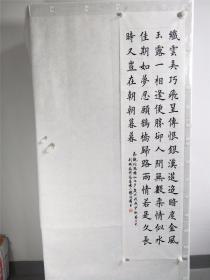 纖雲弄巧飛星傳恨銀漢迢迢暗度金風
玉露一相逢便勝卻人間無數柔情似水
佳期如夢忍顧鵲橋歸路兩情若是久長
時又豈在朝朝暮暮